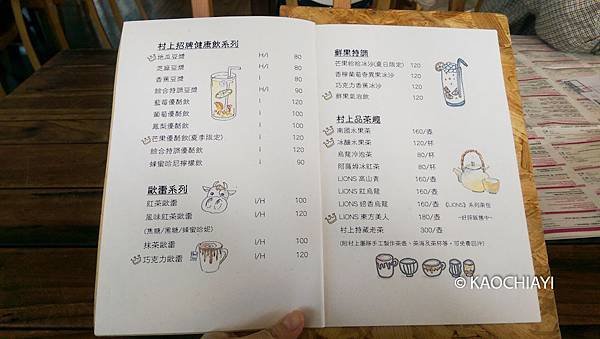 村上招牌健康飲系列
地瓜豆漿 H/I 80
芝麻豆漿 H/I 80
香蕉豆漿 I 80
綜合特調豆漿 H/I 90
藍莓優酪飲 I 120
葡萄優酪飲 I 100
鳳梨優酪飲 I 100
芒果優酪飲(夏季限定) I 120
綜合特調優酪飲 I 120
蜂蜜哈尼檸檬飲 I 90
歐蕾系列
紅茶歐蕾 I/H 100
風味紅茶歐蕾 I/H 120
(焦糖/黑糖/蜂蜜哈妮)
抹茶歐蕾 I/H 100
巧克力歐蕾 I/H 120
鮮果特調
芒果哈哈冰沙(夏日限定) 120
香檸葡萄奇異果冰沙 120
巧克力香蕉冰沙 120
鮮果氣泡飲 120
村上品茶趣
南國水果茶 160/壺
冰釀水果茶 120/杯
烏龍冷泡茶 80/杯
阿薩姆冰紅茶 80/杯
LIONS 高山青 160/壺
LIONS 紅烏龍 160/壺
LIONS 焙香烏龍 160/壺 《LIONS》系列茶包
LIONS 東方美人 180/壺 ~好評販售中~
村上特藏老茶 300/壺
(附村上團隊手工製作茶壺、茶海及茶杯等，可免費回沖)
© KAOCHIAYI